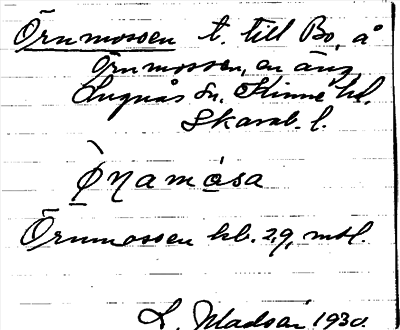 Örnmossen t. till Bo, å
Örnmossen, en äng
Lugnås sn. Kinne hd.
Skarab. l.
Ø̀ɳamåsa
Örnmossen hb. 29, mtl.
L. Madsén 1930.